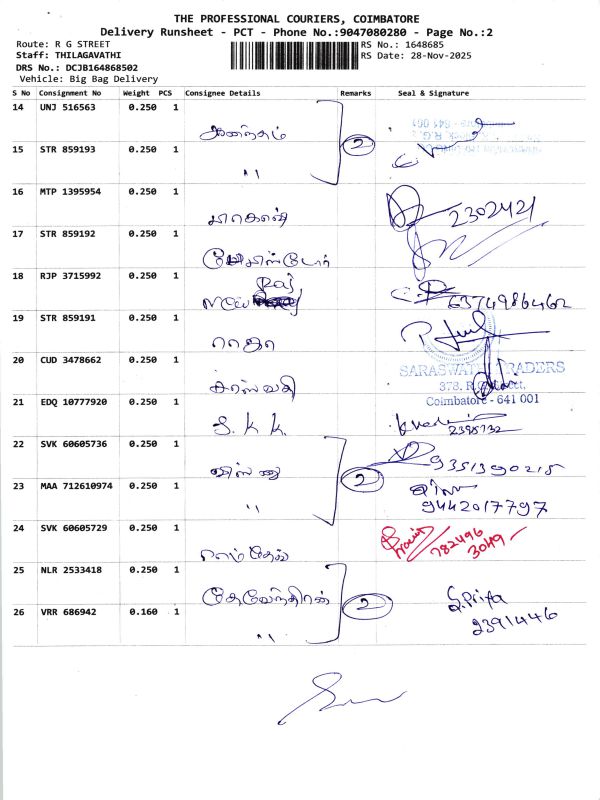 THE PROFESSIONAL COURIERS, COIMBATORE
Delivery Runsheet - PCT - Phone No.:9047080280 - Page No.:2
Route: R G STREET
RS No.: 1648685
Staff: THILAGAVATHI
RS Date: 28-Nov-2025
DRS No.: DCJB164868502
Vehicle: Big Bag Delivery
S No Consignment No Weight PCS Consignee Details Remarks Seal & Signature
14 UNJ 516563 0.250 1
ஆனந்தம் 2
15 STR 859193 0.250 1
"
16 MTP 1395954 0.250 1
2302421
17 STR 859192 0.250 1
18 RJP 3715992 0.250 1
Raj
New 6374986462
19 STR 859191 0.250 1
ராஜா
20 CUD 3478662 0.250 1
SARASWATHI TRADERS
378. R.G. Street,
Coimbatore - 641 001
சரஸ்வதி
21 EDQ 10777920 0.250 1
S. K K. 2395732
22 SVK 60605736 0.250 1
விஷ்ணு 2 9351390215
23 MAA 712610974 0.250 1
" 9442017797
24 SVK 60605729 0.250 1
782496
3049
ராம்தேவ்
25 NLR 2533418 0.250 1
தேவேந்திரன் 2 S.Priya
26 VRR 686942 0.160 1
" 2391446